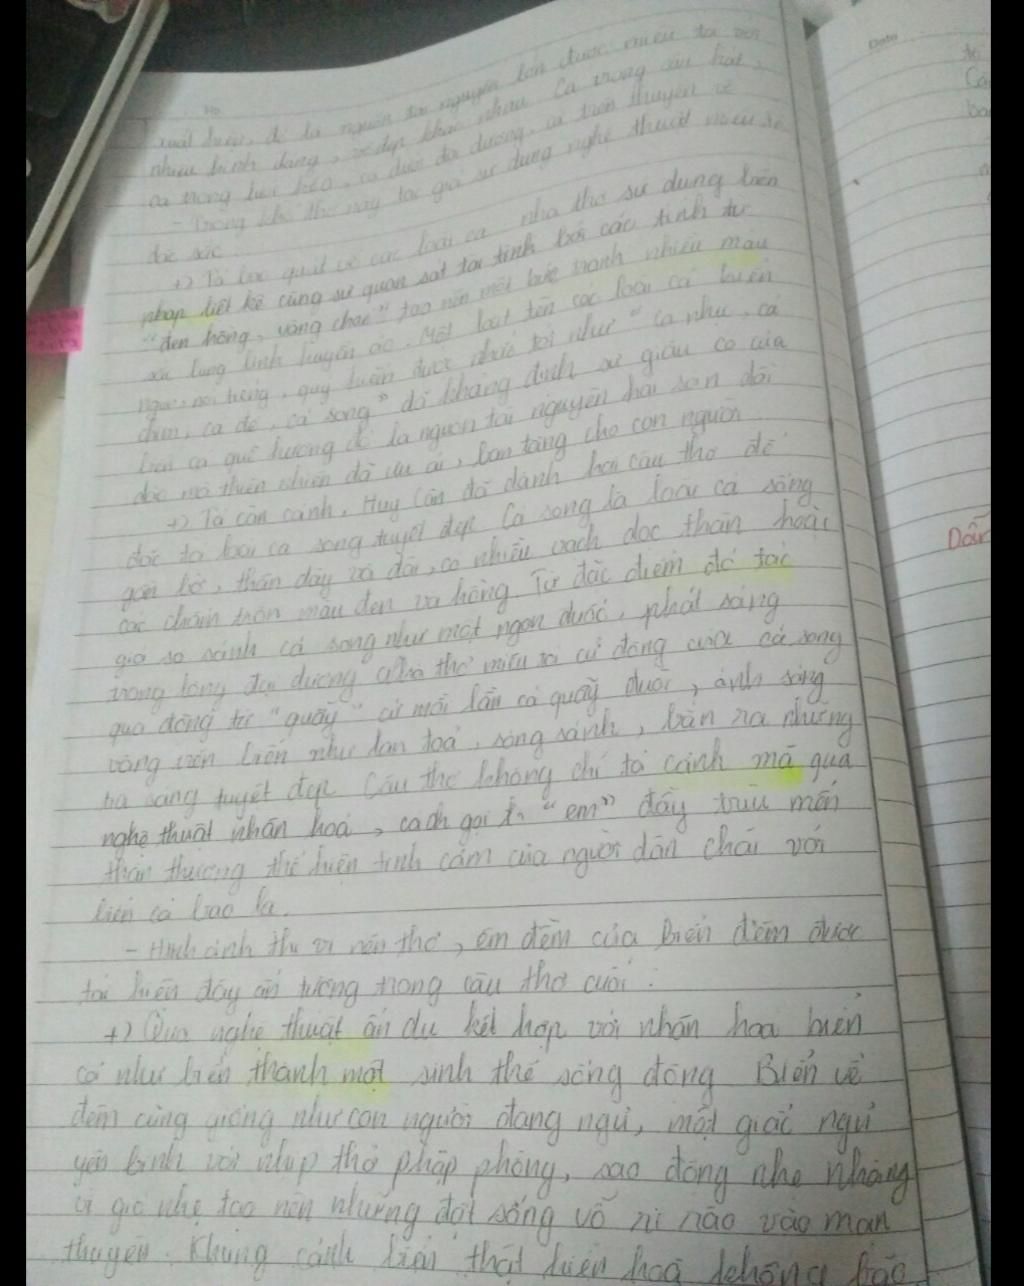 xuất hiện, đó là nguồn tài nguyên lớn được miêu tả với
nhiều hình dáng, vẻ đẹp khác nhau. Cá trong câu hát,
cá trong lưới kéo, cá dưới đại dương, cá trên thuyền về
- Trong khổ thơ này tác giả sử dụng nghệ thuật miêu tả
đặc sắc.
+) Tả bao quát về các loài cá, nhà thơ sử dụng biện
pháp liệt kê cùng sự quan sát tài tình bởi các tính từ
"đen hồng, vàng choé" tạo nên một bức tranh nhiều màu
sắc lung linh huyền ảo. Một loạt tên các loài cá biển
ngon, nổi tiếng, quý hiếm được nhắc tới như "cá nhụ, cá
chim, cá đé, cá song" đã khẳng định sự giàu có của
biển cả quê hương đó là nguồn tài nguyên hải sản dồi
dào mà thiên nhiên đã ưu ái, ban tặng cho con người
+) Tả cận cảnh, Huy Cận đã dành hai câu thơ để
đặc tả loài cá song tuyệt đẹp. Cá song là loài cá sống
gần bờ, thân dày và dài, có nhiều vạch dọc thân hoặc
các chấm tròn màu đen và hồng. Từ đặc điểm đó tác
giả so sánh cá song như một ngọn đuốc, phát sáng
trong lòng đại dương. Nhà thơ miêu tả cử động của cá song
qua động từ "quẫy" cứ mỗi lần cá quẫy đuôi, ánh sáng
vàng trên biển như lan toả, sóng sánh, bắn ra những
tia sáng tuyệt đẹp. Câu thơ không chỉ tả cảnh mà qua
nghệ thuật nhân hoá, cách gọi "em" đầy trìu mến
thân thương thể hiện tình cảm của người dân chài với
biển cả bao la.
- Hình ảnh thú vị nên thơ, êm đềm của biển đêm được
tái hiện đầy ấn tượng trong câu thơ cuối:
+) Qua nghệ thuật ẩn dụ kết hợp với nhân hoá biển
cả như biến thành một sinh thể sống động. Biển về
đêm cũng giống như con người đang ngủ, một giấc ngủ
yên bình với nhịp thở phập phồng, dao động nhẹ nhàng
vì gió nhẹ tạo nên những đợt sóng vỗ rì rào vào mạn
thuyền. Khung cảnh biển thật hiền hoà không
Date
Dẫn